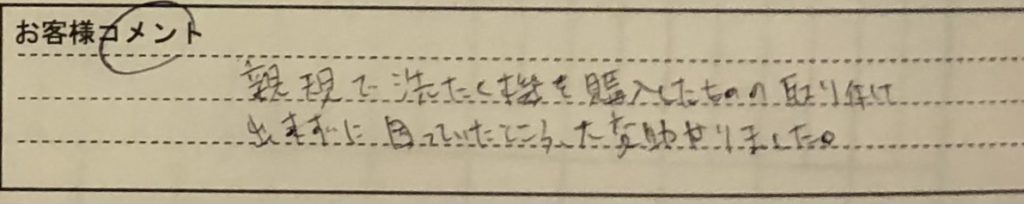 お客様コメント
親現で洗たく機を購入したものの取り付け
出来ずに困っていたところ、大変助かりました。